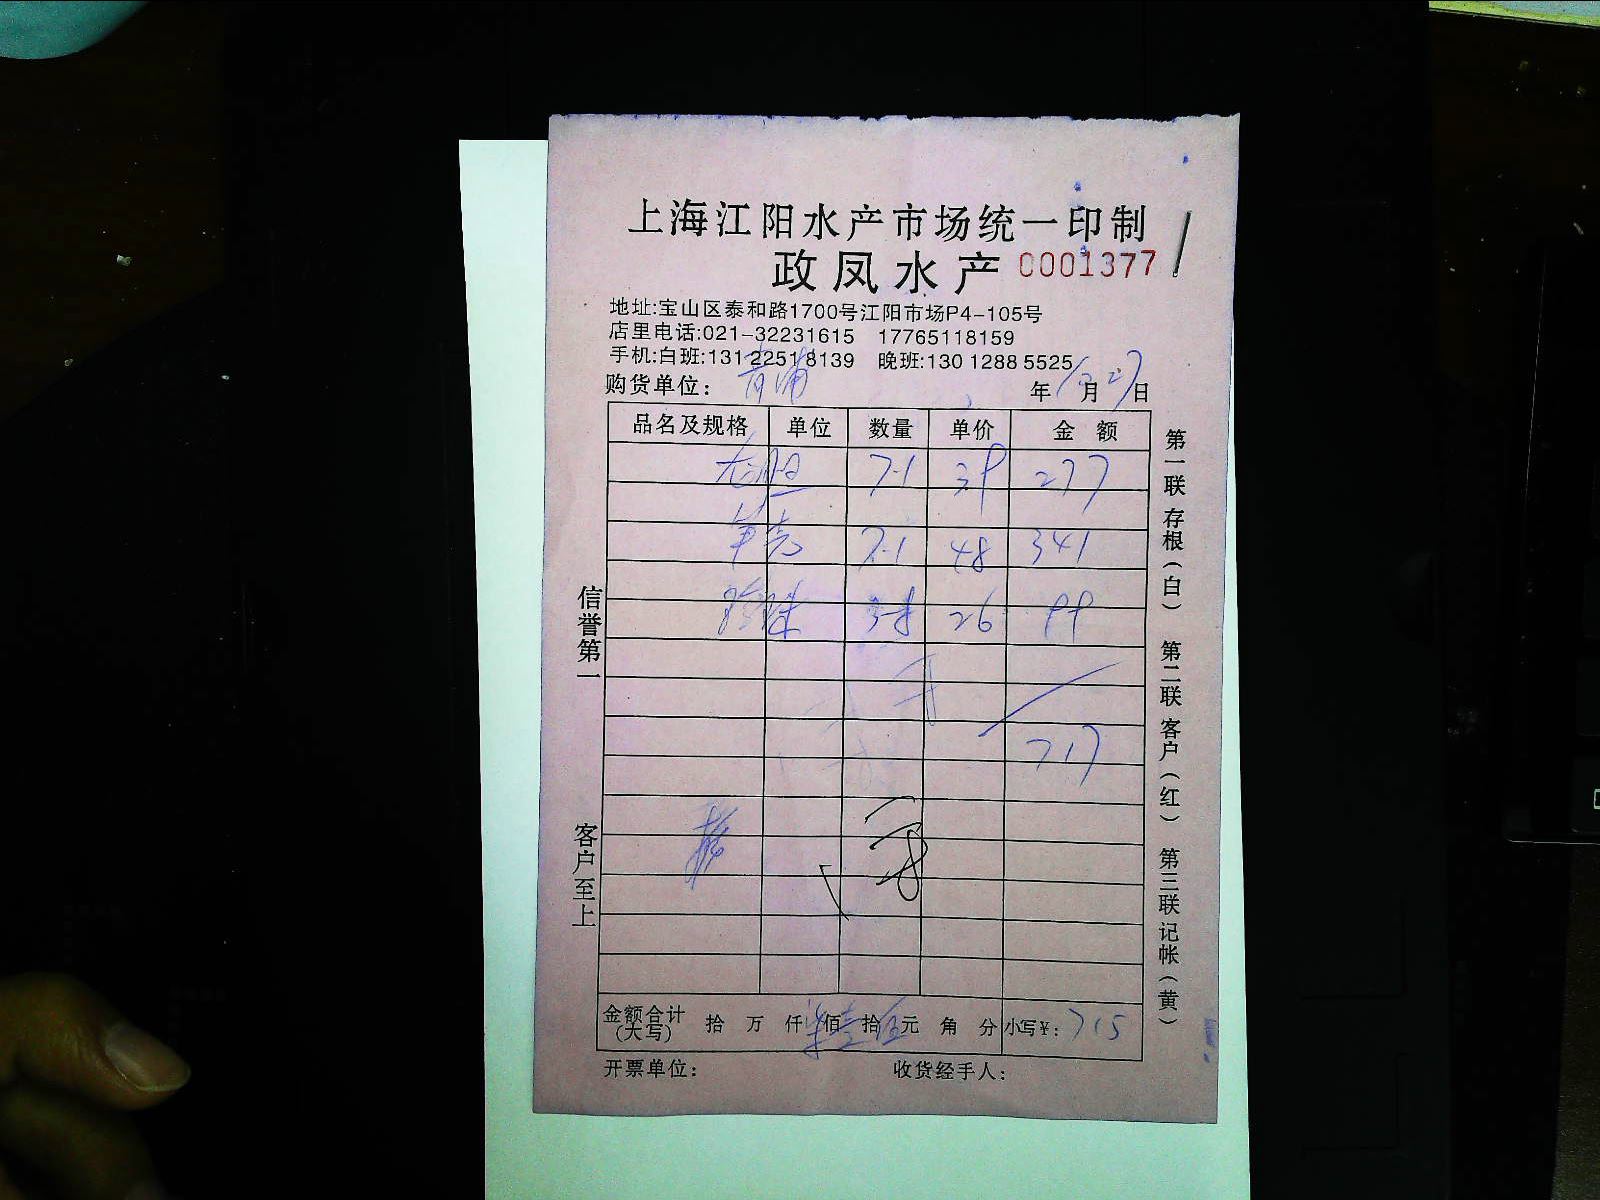 上海江阳水产市场统一印制
政凤水产 0001377
地址:宝山区泰和路1700号江阳市场P4-105号
店里电话:021-32231615 17765118159
手机:白班:131 2251 8139 晚班:130 1288 5525
购货单位: 青浦 年 月 27 日
品名及规格 单位 数量 单价 金额
7.1 39 277
7.1 48 341
珍珠 26 99
717
金额合计(大写) 拾 万 仟 佰 壹 拾 伍 元 角 分 小写¥: 715
开票单位: 收货经手人:
信誉第一
客户至上
第一联 存根(白) 第二联 客户(红) 第三联 记帐(黄)